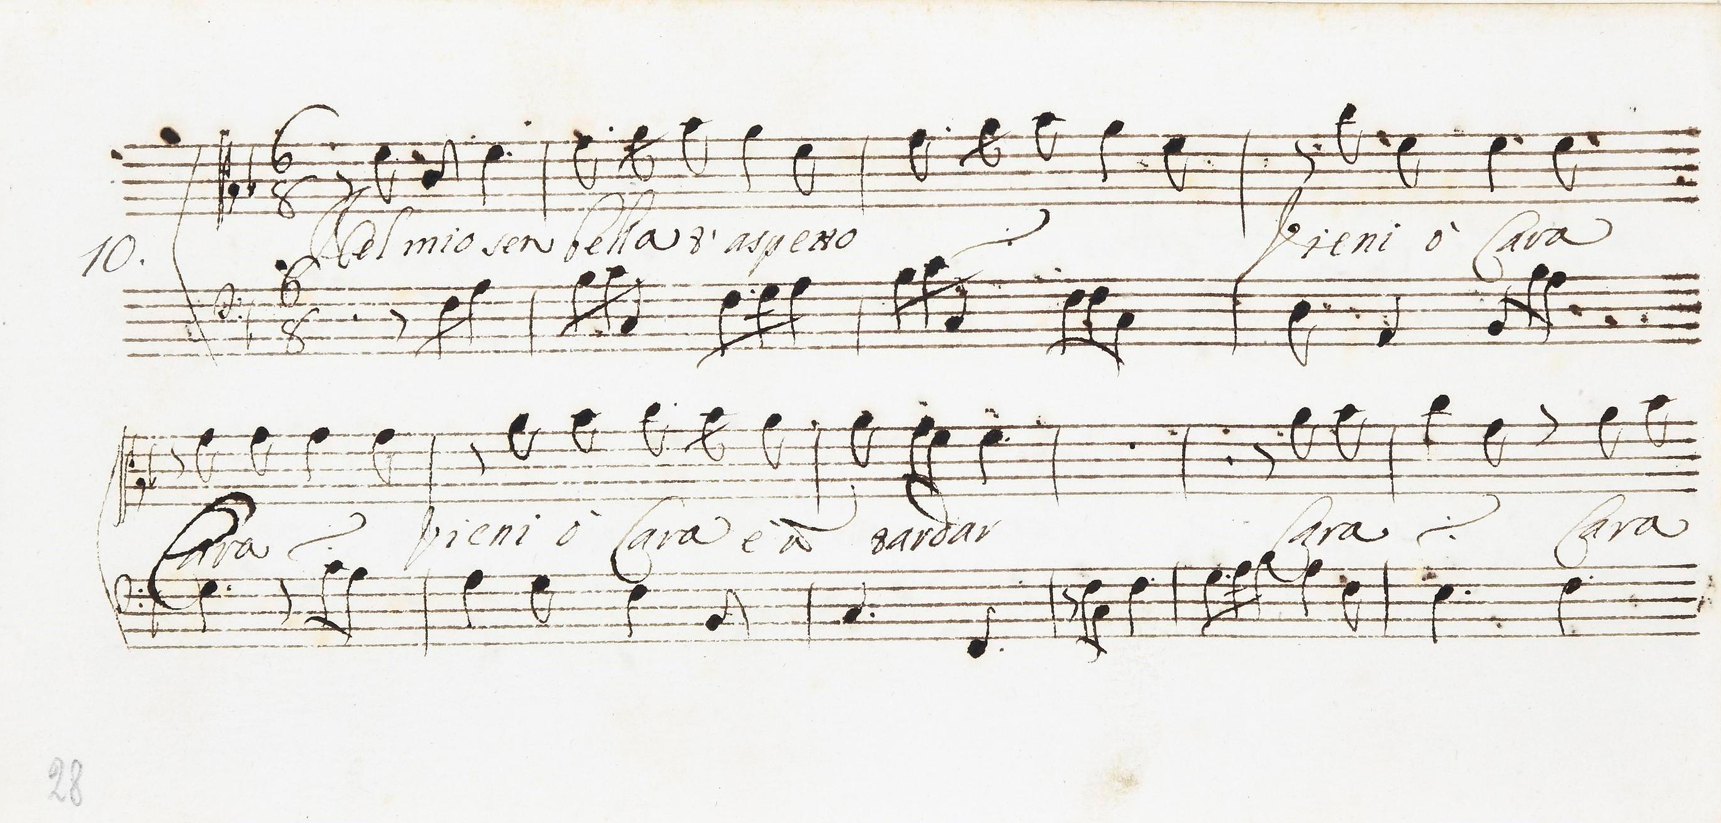 6 8
Nel mio sen bella t' aspetto Vieni ò Cara
10.
6 8
Cara Vieni ò Cara è à tardar Cara Cara
28